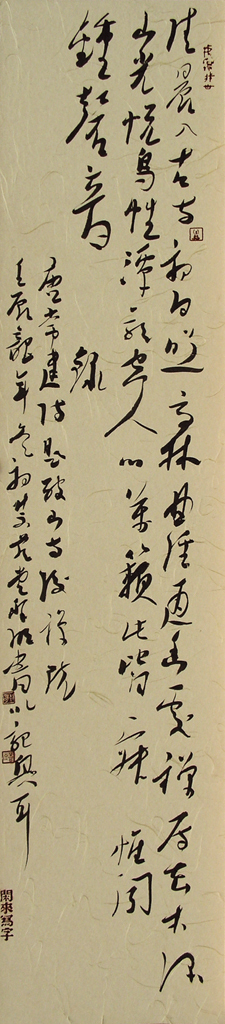 清晨入古寺初日照高林曲徑通幽處禪房花木深
山光悅鳥性潭影空人心萬籟此皆寂惟聞
鍾磬音 錄
唐常建詩題破山寺後禪院
壬辰龍年冬初書以記興耳
閑來寫字